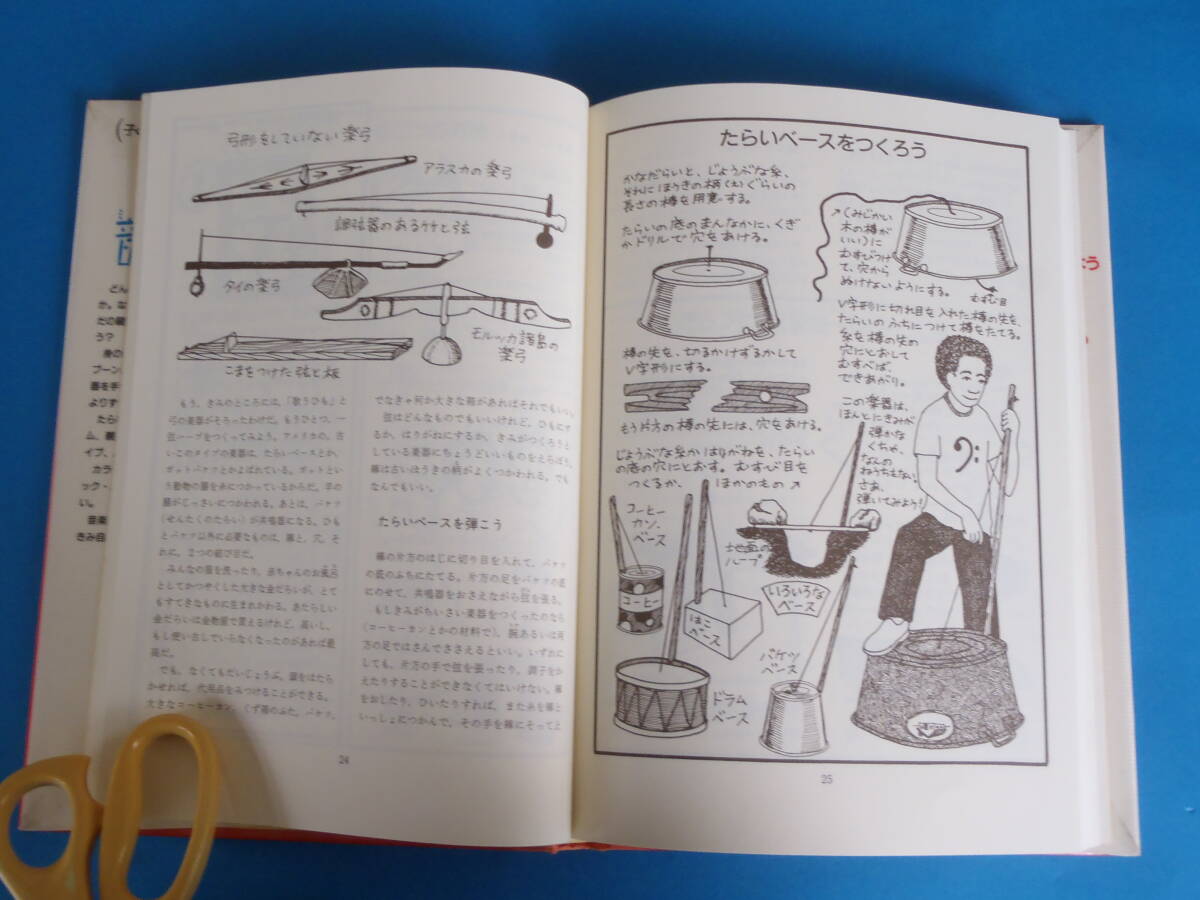 弓形をしていない楽弓
アラスカの楽弓
調弦器のあるサオと弦
タイの楽弓
モルッカ諸島の
楽弓
こまをつけた弦と板
もう、きみのところには、「歌うひも」と
弓の楽器がそろったわけだ。もうひとつ、一
弦ハープをつくってみよう。アメリカの、古
いこのタイプの楽器は、たらいベースとか、
ガットバケツとかよばれている。ガットとい
う動物の腸を糸につかっているからだ。羊の
腸がじっさいにつかわれる。あとは、バケツ
(せんたくのたらい)が共鳴器になる。ひも
とバケツ以外に必要なものは、棒と、穴。そ
れに、2つの結び目だ。
みんなの服を洗ったり、赤ちゃんのお風呂
としてかつやくした大きな金だらいが、とて
もすてきなものに生まれかわる。あたらしい
金だらいは金物屋で買えるけれど、高いし、
もし使い古していらなくなったのがあれば最
高だ。
でも、なくてもだいじょうぶ。頭をはたら
かせれば、代用品をみつけることができる。
大きなコーヒーカン、くず箱のふた、バケツ、
でなきゃ何か大きな箱があればそれでもいい。
弦はどんなものでもいいけれど、ひもにす
るか、はりがねにするか、きみがつくろうと
している楽器にちょうどいいものをえらぼう。
棒は古いほうきの柄がよくつかわれる。でも
なんでもいい。
たらいベースを弾こう
棒の片方のはじに切り目を入れて、バケツ
の底のふちにたてる。片方の足をバケツの底
にのせて、共鳴器をおさえながら弦を張る。
もしきみがちいさい楽器をつくったのなら
(コーヒーカンとかの材料で)、腕あるいは両
方の足ではさんでささえるといい。いずれに
しても、片方の手で弦を張ったり、調子をか
えたりすることができなくてはいけない。棒
をおしたり、ひいたりすれば、また糸を棒と
いっしょにつかんで、その手を棒にそって上
24
たらいベースをつくろう
かなだらいと、じょうぶな糸、
それにほうきの柄(え)ぐらいの
長さの棒を用意する。
たらいの底のまんなかに、くぎ
かドリルで穴をあける。
棒の先を、切るかけずるかして
V字形にする。
もう片方の棒の先には、穴をあける。
じょうぶな糸かはりがねを、たらい
の底の穴にとおす。むすび目を
つくるか、 ほかのもの↗
↗(みじかい
木の棒が
いい)に
むすびつけ
て、穴から
ぬけないようにする。
むすび目
V字形に切れ目を入れた棒の先を、
たらいのふちにつけて棒をたてる。
糸を棒の先の
穴にとおして
むすべば、
できあがり。
この楽器は、
ほんとにきみが
弾かな
くちゃ、
なんの
ねうちもない。
さあ、
弾いてみよう!
コーヒー
カン・
ベース
コーヒー
はこ
ベース
地面の
ハープ
いろいろな
ベース
バケツ
ベース
ドラム
ベース
25